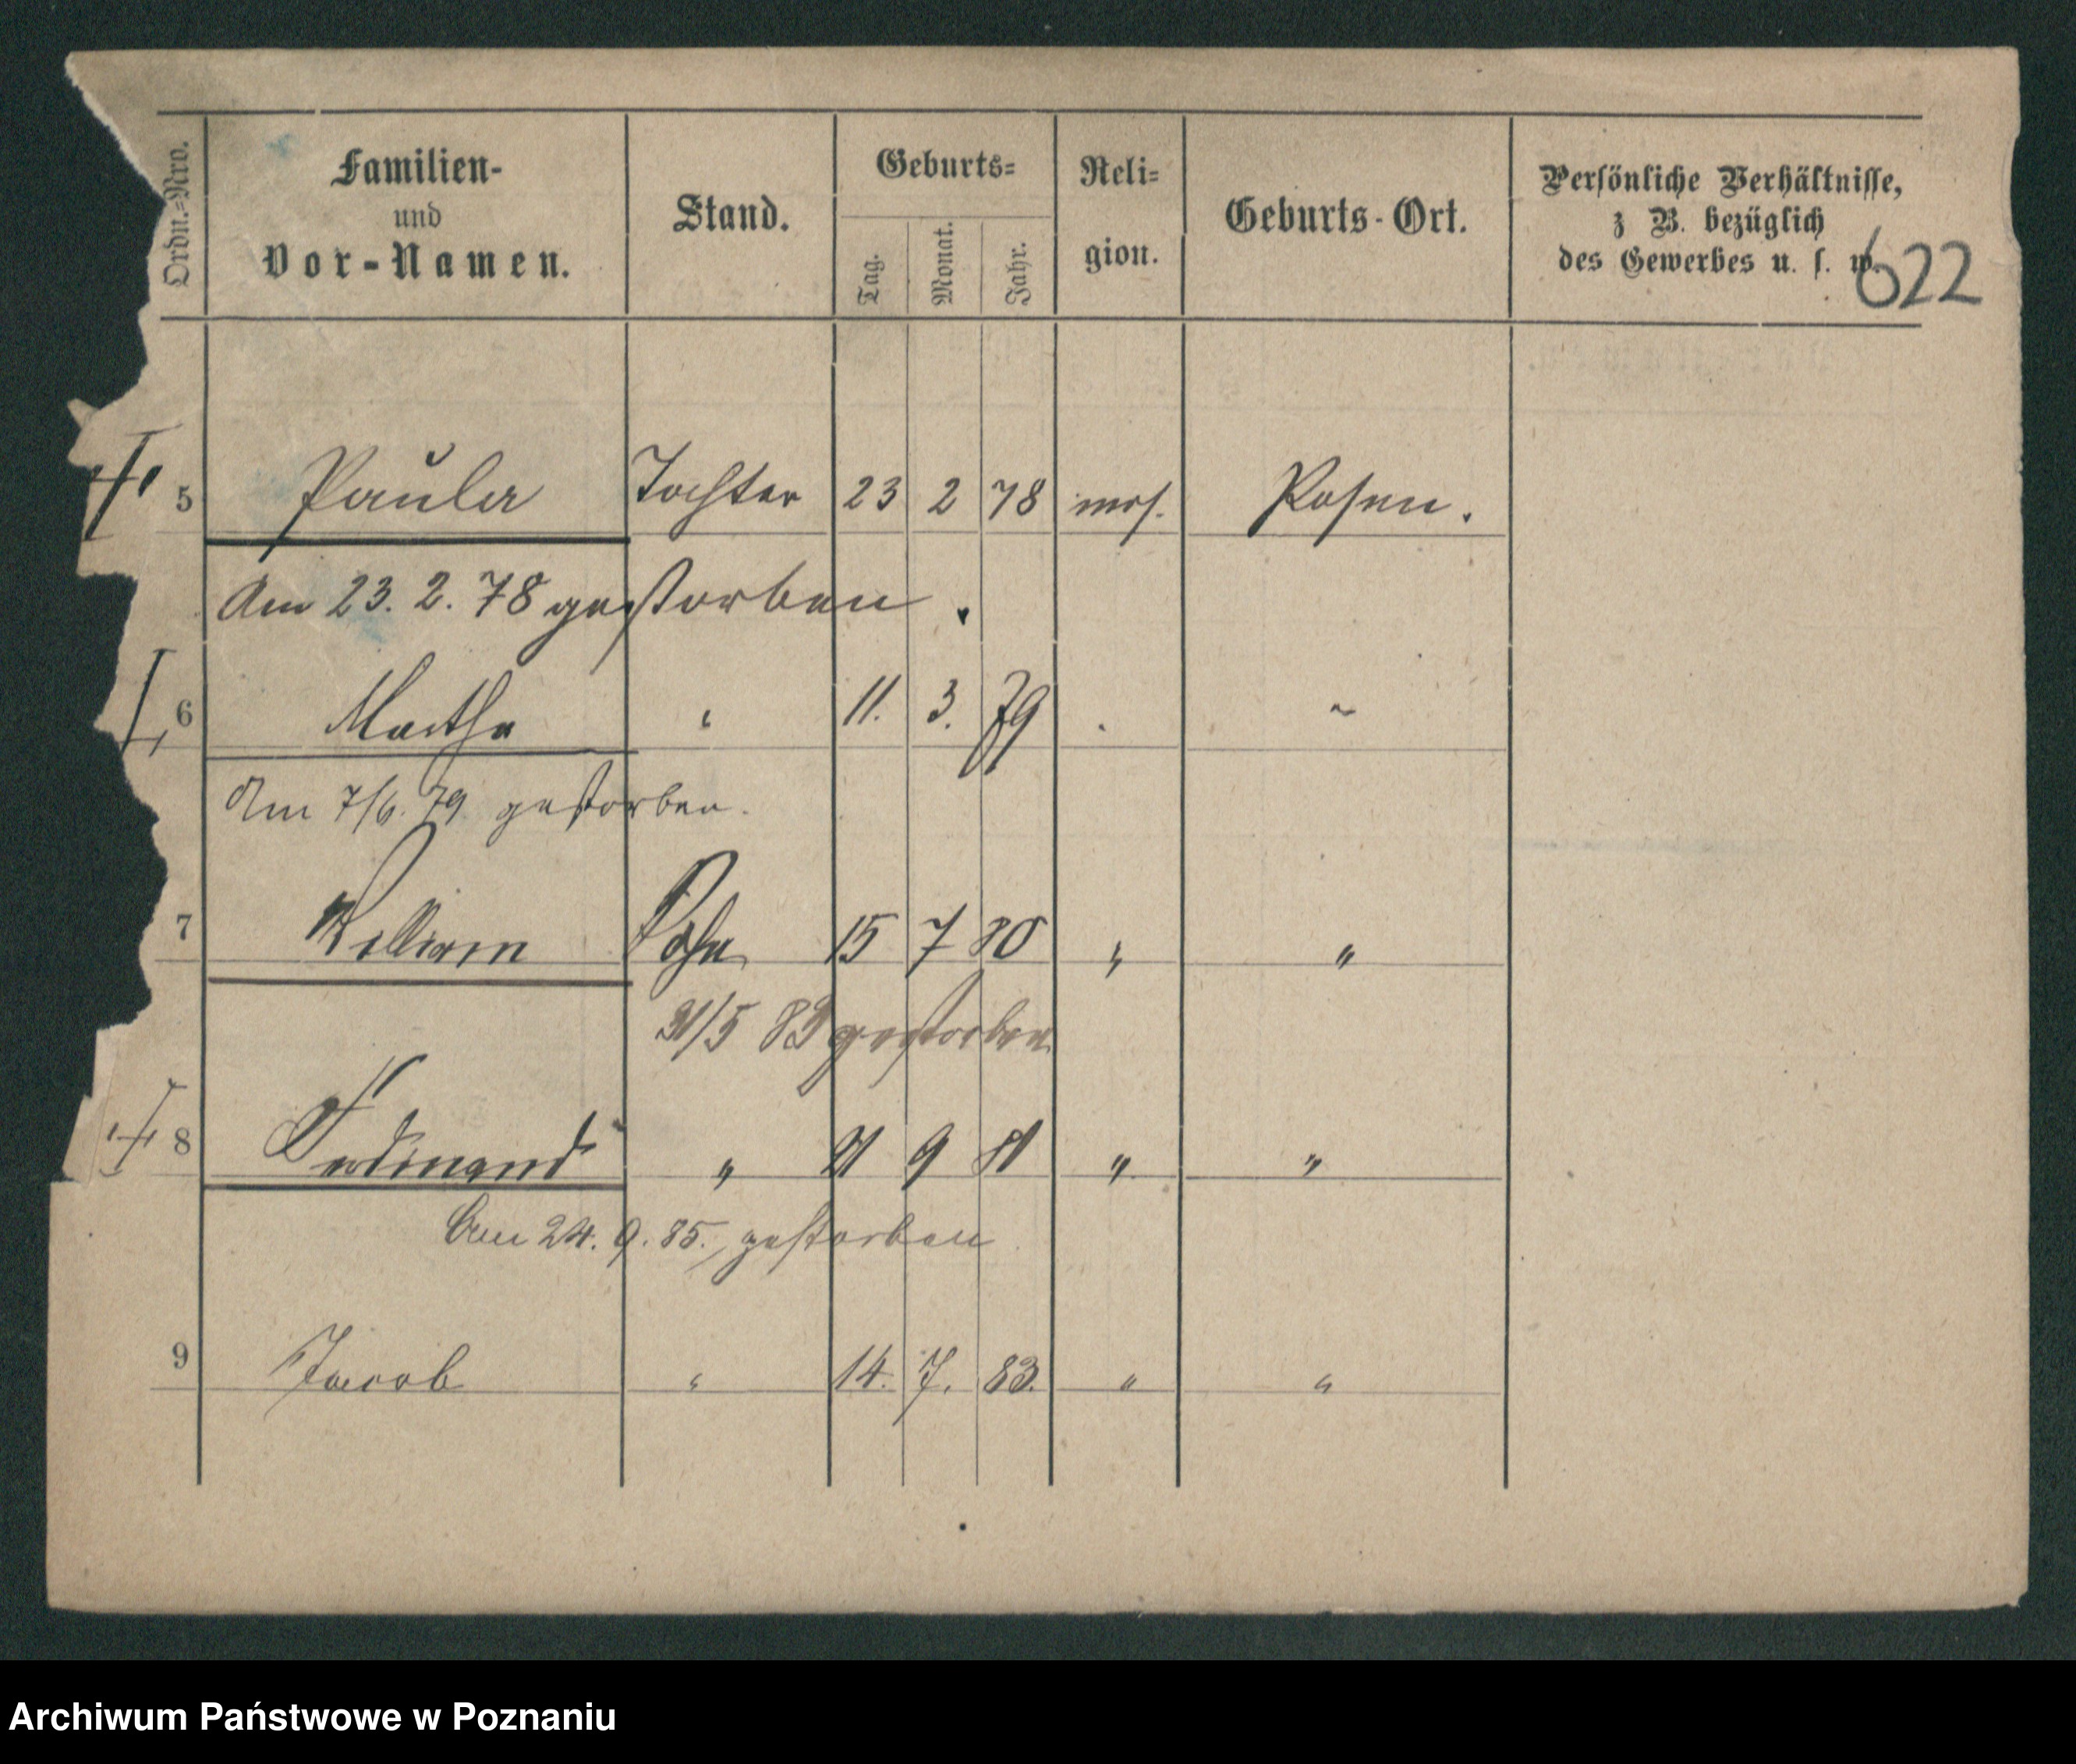 Ordn.=Nro. Familien- und Vor-Namen. Stand. Geburts= Tag. Monat. Jahr. Reli=gion. Geburts-Ort. Persönliche Verhältnisse, z B. bezüglich des Gewerbes u. s. w.
622
5 Paula Tochter 23 2 78 mos. Posen.
Am 23. 2. 78 gestorben.
6 Martha " 11. 3. 79 " "
Am 7/6. 79. gestorben.
7 William Sohn 15 7 80 " "
31/5 83 gestorben
8 Ferdinand " 21 9 81 " "
Am 24. 9. 85. gestorben
9 Jacob " 14. 7. 83. " "
Archiwum Państwowe w Poznaniu